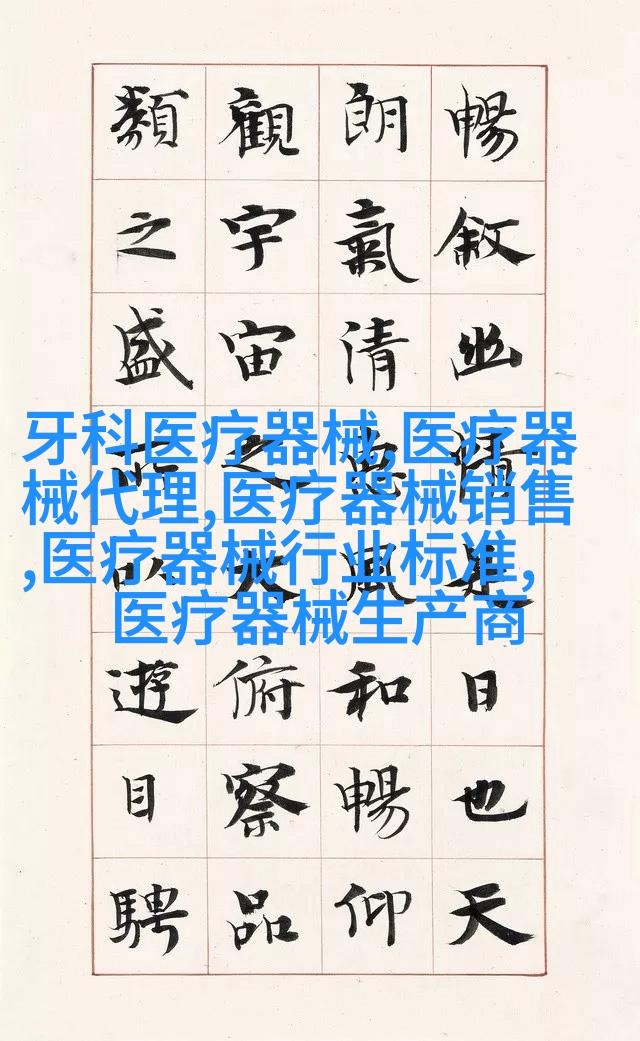 暢敘幽情是日也天
朗氣清惠風和暢仰
觀宇宙之大俯察品
類之盛所以遊目騁
牙科医疗器械,医疗器
械代理,医疗器械销售
,医疗器械行业标准,
医疗器械生产商